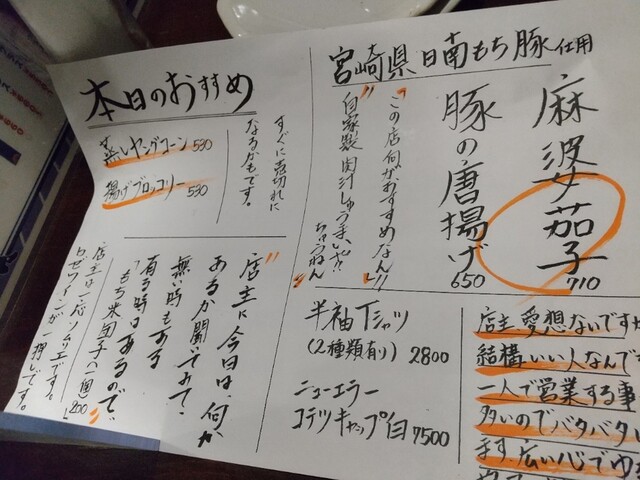 宮崎県日南もち豚仕用
麻婆茄子
710
豚の唐揚げ
650
"この店何がおすすめなん!!"
"自家製肉汁しゅうまいや!!
ちゅうねん"
本日のおすすめ
蒸しヤングコーン 530
揚げブロッコリー 530
すぐに売切れに
なるかもです。
"店主に今日は、何か
あるか聞いてみて。
無い時もある
有る時はあるので"
「もち米団子(1個)200」
店主は一応ソムリエです。
ロゼワインが
押しです。
半袖Tシャツ
(2種類有り) 2800
ニューエラー
コテツキャップ白 7500
店主、愛想ないですけ
結構いい人なんで
一人で営業する事
多いのでバタバタし
ます、広い心でゆ